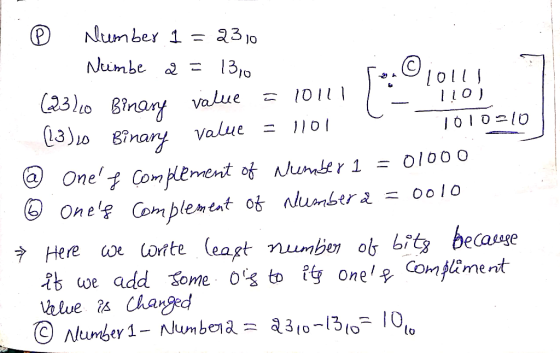 Ⓟ Number 1 = 23₁₀
Numbe 2 = 13₁₀
(23)₁₀ Binary value = 10111
(13)₁₀ Binary value = 1101
[∵ Ⓒ 10111
- 1101
1010=10]
ⓐ One's Complement of Number 1 = 01000
ⓑ One's Complement of Number 2 = 0010
⇒ Here we write least number of bits because
if we add some 0's to its one's Compliment
Value is Changed
Ⓒ Number 1 - Number 2 = 23₁₀-13₁₀= 10₁₀